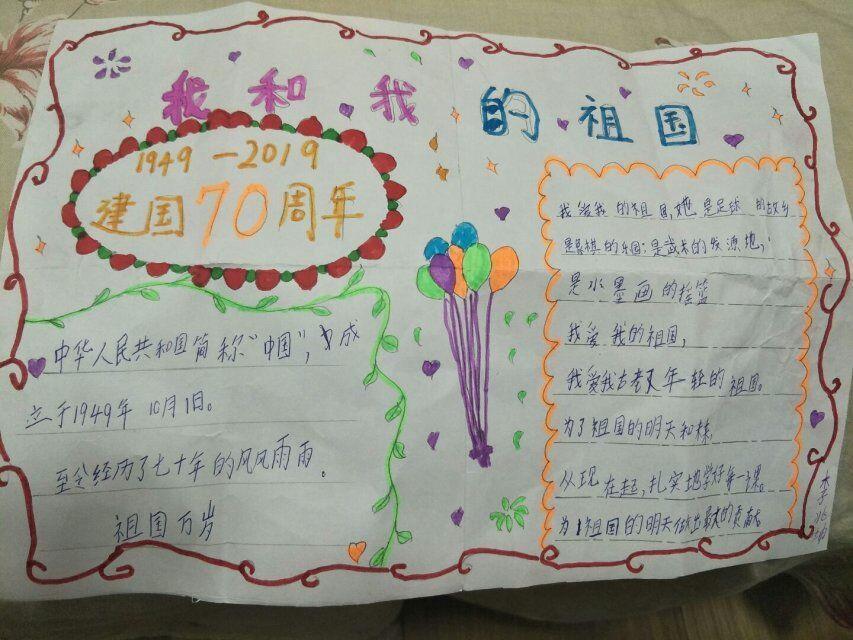 我和我的祖国
1949-2019
建国70周年
中华人民共和国简称“中国”,成
立于1949年10月1日。
至今经历了七十年的风风雨雨。
祖国万岁
我爱我的祖国,她是足球的故乡
是象棋的乐园;是武术的发源地;
是水墨画的摇篮
我爱我的祖国,
我爱我古老又年轻的祖国。
为了祖国的明天和
从现在起,扎实地学好每一课。
为祖国的明天做出最大的贡献
李兆